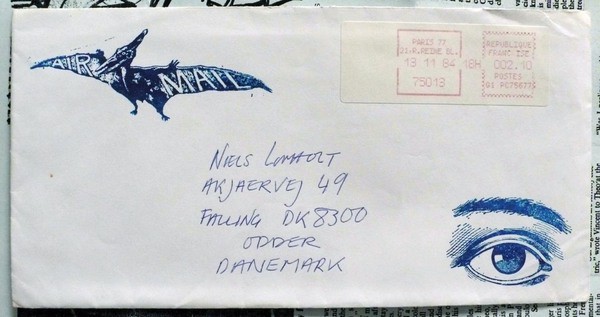 AIR MAIL
PARIS 77
21.R.REINE BL.
13 11 84 18H
75013
REPUBLIQUE
002.10
POSTES
NIELS LOMHOLT
AKJAERVEJ 49
FALLING DK8300
ODDER
DANEMARK
wrote Vincent to Theo